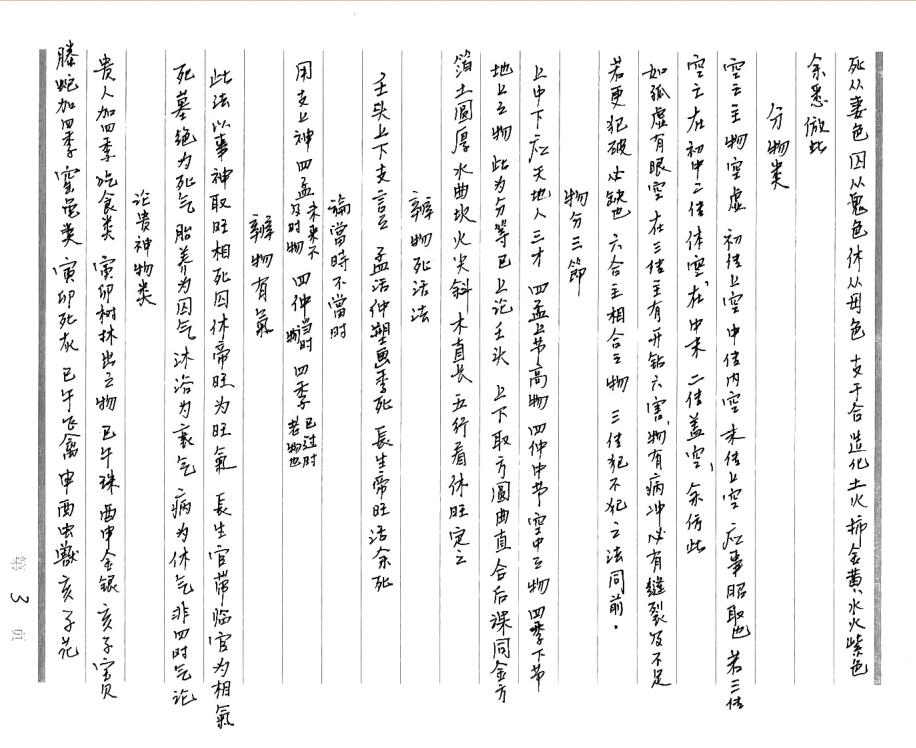 死从妻色 囚从鬼色 休从母色 支干合 造化土火 柿金黄 水火紫色
余悉倣此
分物类
空亡主物空虚 初传上空 中传内空 末传上空 应事眧取也 若三传
空亡在初中二传体空 在中末二传盖空 余仿此
如孤虚有眼空 在三传主有开钻 六害物有病 冲必有缝裂及不足
若更犯破必缺也 六合主相合之物 三传犯不犯之法同前。
物分三節
上中下应天地人三才 四孟上节高物 四仲中节空中之物 四季下节
地上之物 此为分等 已上论壬头 上下取方圆曲直合后课同 金方
箔土圆厚 水曲坎 火尖斜 木直長 五行看休旺定之
辨物死活法
壬头上下支言之 孟活 仲塑画 季死 長生帝旺活余死
論當時不當时
用支上神四孟未来不及时物 四仲当时物 四季已过时老物也
辨物有氣
此法以事神取旺相死囚休 帝旺为旺氣 長生官带临官为相氣
死墓绝为死气 胎养为囚气 沐浴为衰气 病为休气 非四时气论
论贵神物类
贵人加四季吃食类 寅卯树林出之物 巳午珠 酉申金银 亥子宝贝
螣蛇加四季窑龟类 寅卯死灰 巳午飞禽 申酉虫獸 亥子花
第 3 页